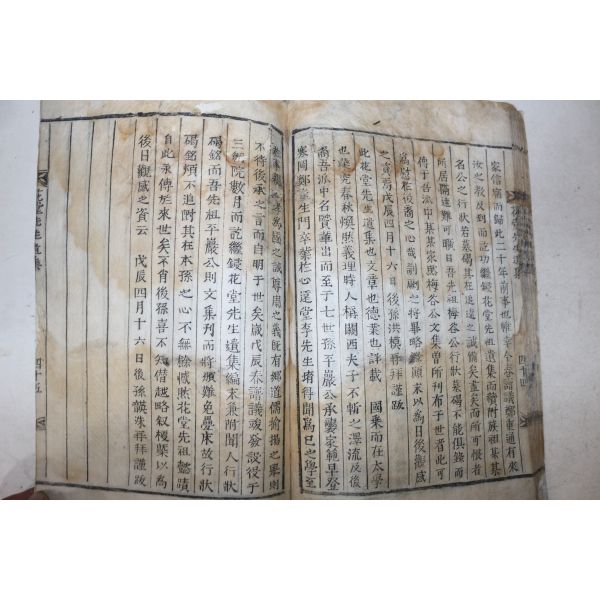 家借宿而歸此二十年前事也惟幸今春諮議鄭重適有來
汝之教及到而訖功繼鋟花堂先祖遺集而賛附族祖某其
名公之行狀若墓碣其在述先之誠備矣盡矣而所可恨者
所居隔遠難可曠日吾先祖梅谷公行狀墓碣不能俱鋟而
傳于吾派中某某家然梅谷公文集曾所刊布于世者此可
為財在後裔之心哉剞劂之將畢略綴顛末以為日後感
之資焉戊辰四月十六日後孫洪模再拜謹跋
此花堂先生遺集也文章也德業也詳載 國乘而在太學
也華冕春秋煥然義理時人稱關西夫子不斬之澤流及後
裔吾派中名賢輩出而至于七世孫平巖公承襲家範早登
寒岡鄭先生門卒業於心遠堂李先生堵得聞為己之學至
為國之誠尊周之義旣有鄉道儒揄揚之擧則
不待後承之言而自明于世矣歲戊辰春諮議峻發設役于
三 院數月而訖繼鋟花堂先生遺集編末兼附聞人行狀
碣銘而吾先祖平巖公則文集刊而將頒難免疊床故行狀
碣銘煩不追附其在本孫之心不無餘憾然花堂先祖懿蹟
自此永傳於來世矣不肖後孫喜不 僭越略叙榎槩以為
後日觀感之資云 戊辰四月十六日後孫 洙再拜謹跋
四十五